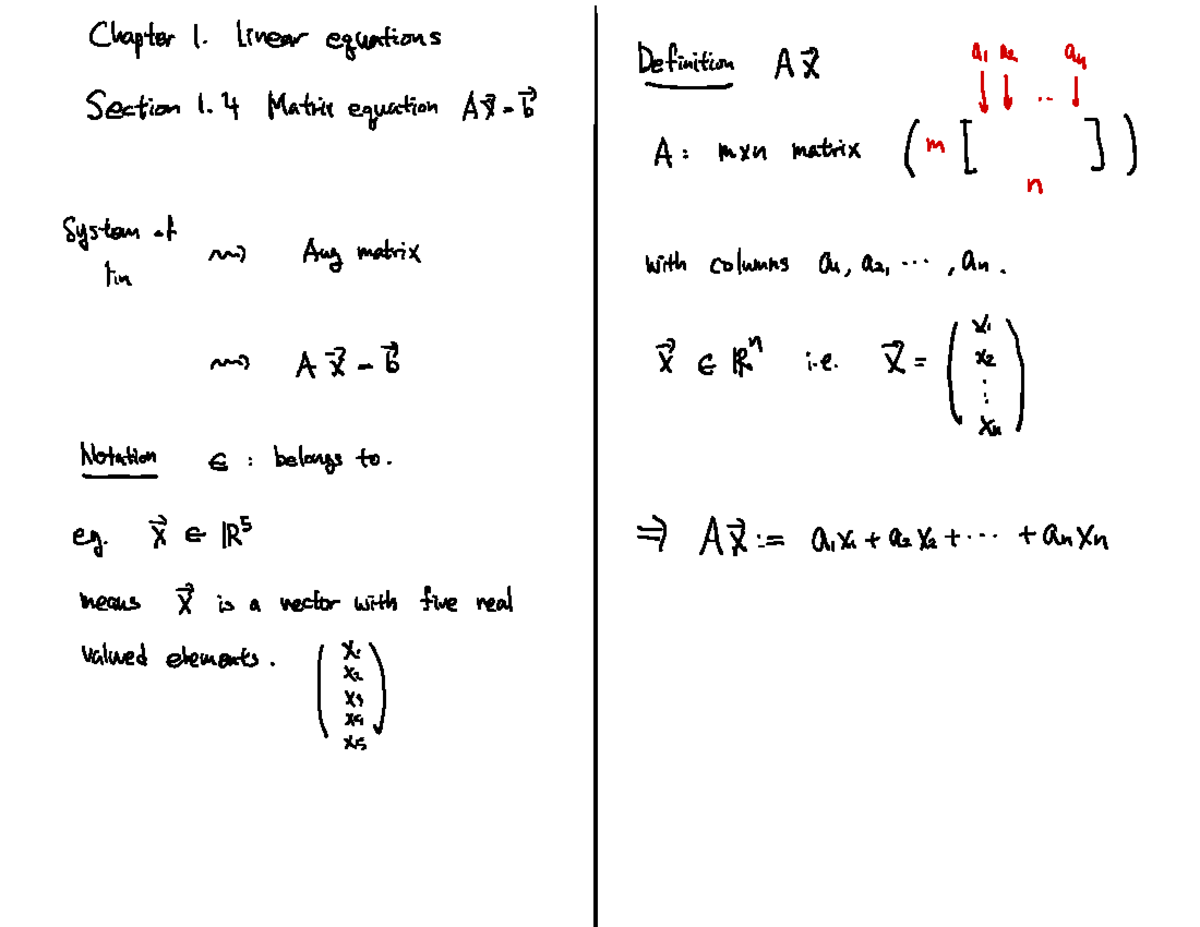 Chapter 1. Linear equations
Section 1.4 Matrix equation Ax⃗ = b⃗
System of
lin ⇝ Aug matrix
⇝ A x⃗ = b⃗
Notation ∈ : belongs to.
eg. x⃗ ∈ ℝ⁵
means x⃗ is a vector with five real
valued elements.
x₁
x₂
x₃
x₄
x₅
Definition A x⃗
a₁ a₂ .. aₙ
A : m×n matrix ( m [ ] )
n
with columns a₁, a₂, ⋯ , aₙ.
x⃗ ∈ ℝⁿ i.e. x⃗ =
x₁
x₂
⋮
xₙ
⇒ A x⃗ := a₁x₁ + a₂x₂ + ⋯ + aₙxₙ